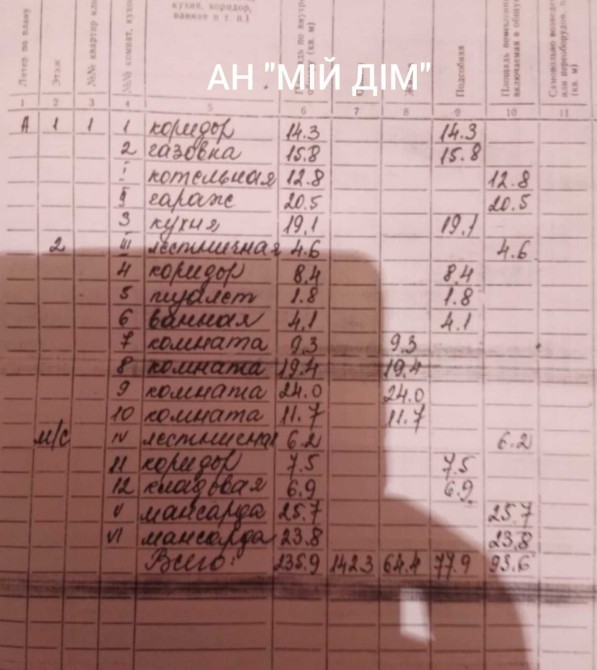 кухня, коридор,
ванная и т. п.)
Литер по плану
Этаж
№№ квартир
№№ комнат, кухонь
Подсобная
АН "МІЙ ДІМ"
1 2 3 4 5 6 7 8 9 10 11
А 1 1 1 коридор 14.3 14.3
2 газовка 15.8 15.8
I котельная 12.8 12.8
II гараж 20.5 20.5
3 кухня 19,1 19,1
2 III лестничная 4.6 4.6
4 коридор 8.4 8.4
5 туалет 1.8 1.8
6 ванная 4.1 4.1
7 комната 9.3 9.3
8 комната 19.4 19.4
9 комната 24.0 24.0
10 комната 11.7 11.7
м/с IV лестничная 6.2 6.2
11 коридор 7.5 7.5
12 кладовая 6.9 6.9
V мансарда 25.7 25.7
VI мансарда 23.8 23.8
Всего: 235.9 142.3 64.4 77.9 93.6